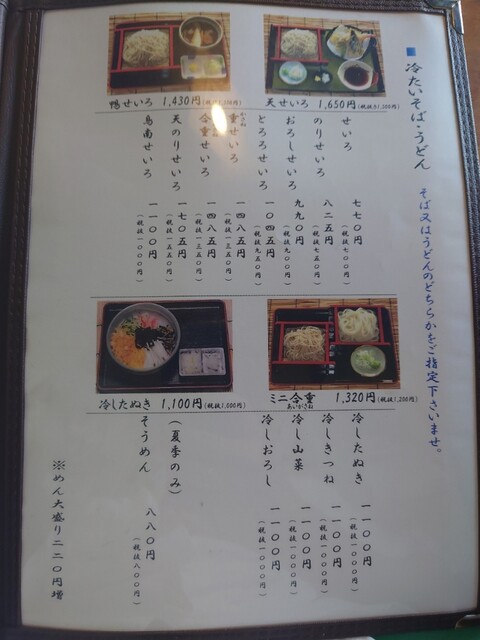 ■ 冷たいそば・うどん
そば又はうどんのどちらかをご指定下さいませ。
天せいろ 1,650円(税抜き1,500円)
鴨せいろ 1,430円(税抜1,300円)
せいろ 七七〇円(税抜七〇〇円)
のりせいろ 八二五円(税抜七五〇円)
おろしせいろ 九九〇円(税抜九〇〇円)
とろろせいろ 一〇四五円(税抜九五〇円)
重せいろ 一四八五円(税抜一三五〇円)
かさね
合重せいろ 一四八五円(税抜一三五〇円)
天のりせいろ 一七〇五円(税抜一五五〇円)
鳥南せいろ 一一〇〇円(税抜一〇〇〇円)
ミニ合重 1,320円(税抜1,200円)
あいがさね
冷したぬき 1,100円(税抜1,000円)
冷したぬき 一一〇〇円(税抜一〇〇〇円)
冷しきつね 一一〇〇円(税抜一〇〇〇円)
冷し山菜 一一〇〇円(税抜一〇〇〇円)
冷しおろし 一一〇〇円(税抜一〇〇〇円)
(夏季のみ)
そうめん 八八〇円(税抜八〇〇円)
※めん大盛り二二〇円増